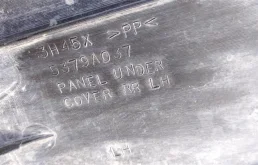 3H45X >PP<
5379A047
PANEL UNDER
COVER RR LH
LH